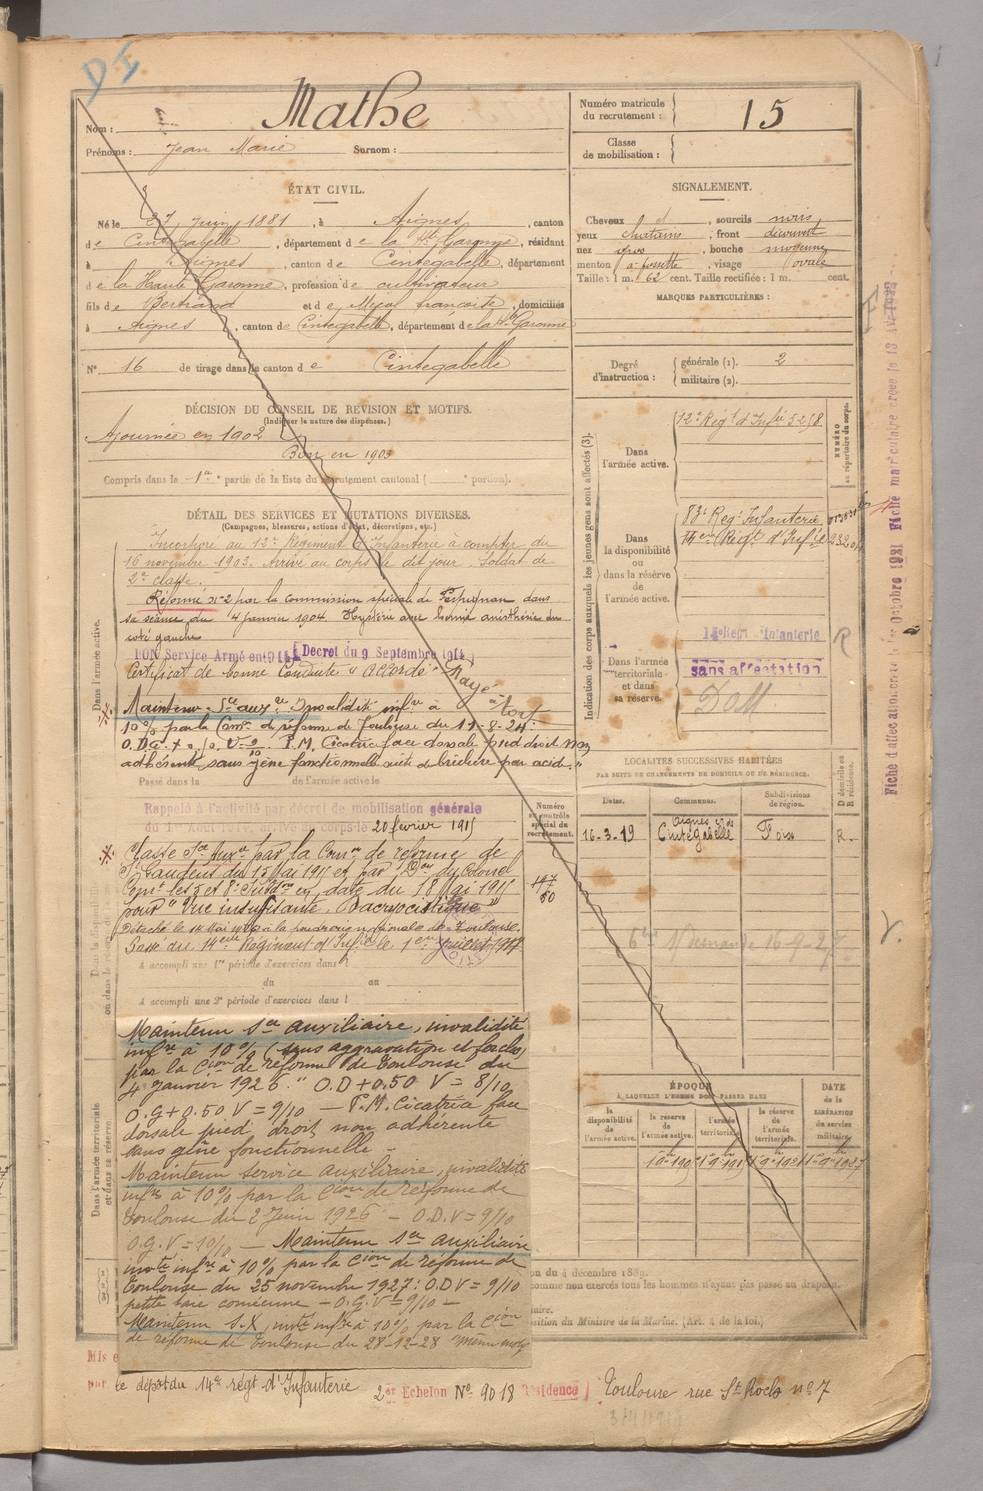 DI
Nom : Mathe
Prénoms : Jean Marie Surnom :
Numéro matricule du recrutement : 15
Classe de mobilisation :
ÉTAT CIVIL.
Né le 27 Juin 1881, à Aignes, canton
de Cintegabelle, département de la Hte Garonne, résidant
à Aignes, canton de Cintegabelle, département
de la Haute Garonne, profession de cultivateur
fils de Bertrand et de française, domiciliés
à Aignes, canton de Cintegabelle, département de la Hte Garonne
N° 16 de tirage dans le canton de Cintegabelle
SIGNALEMENT.
Cheveux et, sourcils noirs
yeux chatains, front découvert
nez gros, bouche moyenne
menton à fossette, visage ovale
Taille : 1 m. 62 cent. Taille rectifiée : 1 m. cent.
MARQUES PARTICULIÈRES :
Degré d'instruction : générale (1). 2
militaire (2).
DÉCISION DU CONSEIL DE REVISION ET MOTIFS.
(Indiquer la nature des dispenses.)
Ajourné en 1902
Bon en 1903
Compris dans la 1re partie de la liste du recrutement cantonal ( portion).
DÉTAIL DES SERVICES ET MUTATIONS DIVERSES.
(Campagnes, blessures, actions d'éclat, décorations, etc.)
Dans l'armée active.
Incorporé au 12e Régiment d'Infanterie à compter du
16 novembre 1903. Arrivé au corps le dit jour. Soldat de
2e classe.
Réformé n° 2 par la commission spéciale de Perpignan dans
sa séance du 4 janvier 1904. Hystérie avec hémi anésthésie du
coté gauche
BON Service Armé en 1914 Décret du 9 Septembre 1914
Certificat de bonne Conduite "Accordé" Rayé à tort
Maintenu Sce auxre Invalidité infre à
10% par la Comon de réforme de Toulouse du 11-8-24:
P.M. Cicatrice face dorsale pied droit non
adhérente sans gêne fonctionnelle suite de brûlure par acide."
Passé dans la de l'armée active le
Rappelé à l'activité par décret de mobilisation générale
du 1er Août 1914, arrivé au corps le 20 février 1915
Classé Sce Auxre par la Comon de réforme de
St Gaudens du 13 Mai 1915 et par Don du Colonel
en date du 18 Mai 1915
pour "Vue insuffisante, Dacryocistique"
à la poudrerie nationale de Toulouse.
Passé du 14eme Régiment d'Infie le 1er Juillet 1917
A accompli une 1re période d'exercices dans l
du au
A accompli une 2e période d'exercices dans l
Numéro au contrôle spécial du recrutement.
Indication des corps auxquels les jeunes gens sont affectés (3).
NUMÉRO au répertoire du corps.
Dans l'armée active. 12e Régt d'Infie
Dans la disponibilité ou dans la réserve de l'armée active. 83e Regt Infanterie
14eme Régt d'Infie
Dans l'armée territoriale et dans sa réserve. 14e Régt Infanterie
R
sans affectation
LOCALITÉS SUCCESSIVES HABITÉES
PAR SUITE DE CHANGEMENTS DE DOMICILE OU DE RÉSIDENCE.
Dates. Communes. Subdivisions de région. D domicile ou R résidence.
16-3-19 Aignes Cintegabelle Foix R.
16-9-27
Maintenu Sce auxiliaire, invalidité
infre à 10% (sans aggravation et forclos)
par la Cion de réforme de Toulouse du
4 janvier 1926." O.D + 0.50 V = 8/10
O.G + 0.50 V = 9/10 — P.M. Cicatrice face
dorsale pied droit non adhérente
sans gêne fonctionnelle -
Maintenu service auxiliaire, invalidité
infre à 10% par la Cion de réforme de
Toulouse du 2 Juin 1926 - O.D.V = 9/10
O.G.V = 10/10 — Maintenu Sce auxiliaire
invté infre à 10% par la Cion de réforme de
Toulouse du 25 novembre 1927: O.D V = 9/10
petite taie cornéenne - O.G.V = 9/10 -
Maintenu S.X, invté infre à 10% par la Cion
de réforme de Toulouse du 28-12-28
Dans l'armée territoriale et dans sa réserve.
ÉPOQUE
À LAQUELLE L'HOMME DOIT PASSER DANS
DATE de la LIBÉRATION du service militaire.
la disponibilité de l'armée active. la réserve de l'armée active. l'armée territoriale. la réserve de l'armée territoriale.
on du 4 décembre 1889.
comme non exercés tous les hommes n'ayant pas passé au drapeau.
osition du Ministre de la Marine. (Art. 4 de la loi.)
Mis e
par le dépôt du 14e régt d'Infanterie 2er Echelon N° 9018 Résidence Toulouse rue St Roch n° 7